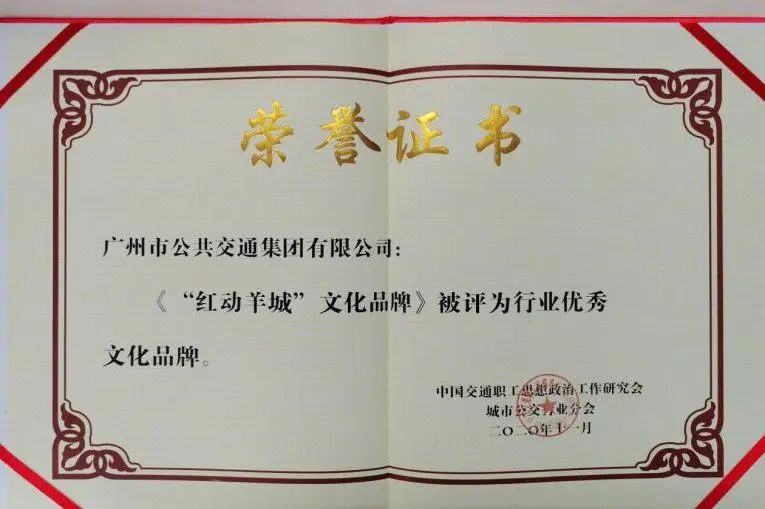 荣誉证书
广州市公共交通集团有限公司：
《“红动羊城”文化品牌》被评为行业优秀
文化品牌。
中国交通职工思想政治工作研究会
城市公交行业分会
二〇二〇年十一月